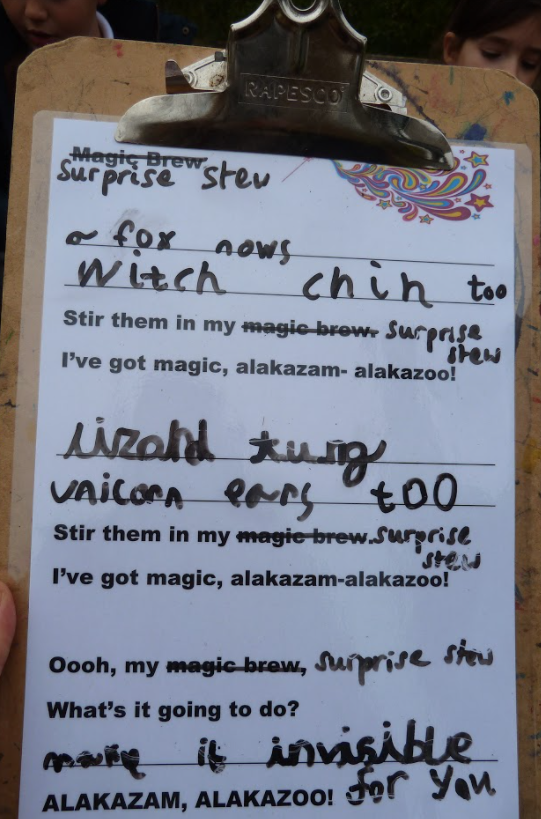 RAPESCO
Magic Brew
Surprise stew
a fox nows
Witch chin too
Stir them in my magic brew. surprise
stew
I've got magic, alakazam- alakazoo!
lizard tung
unicorn ears too
Stir them in my magic brew. surprise
stew
I've got magic, alakazam-alakazoo!
Oooh, my magic brew, surprise stew
What's it going to do?
make it invisible
ALAKAZAM, ALAKAZOO! for you